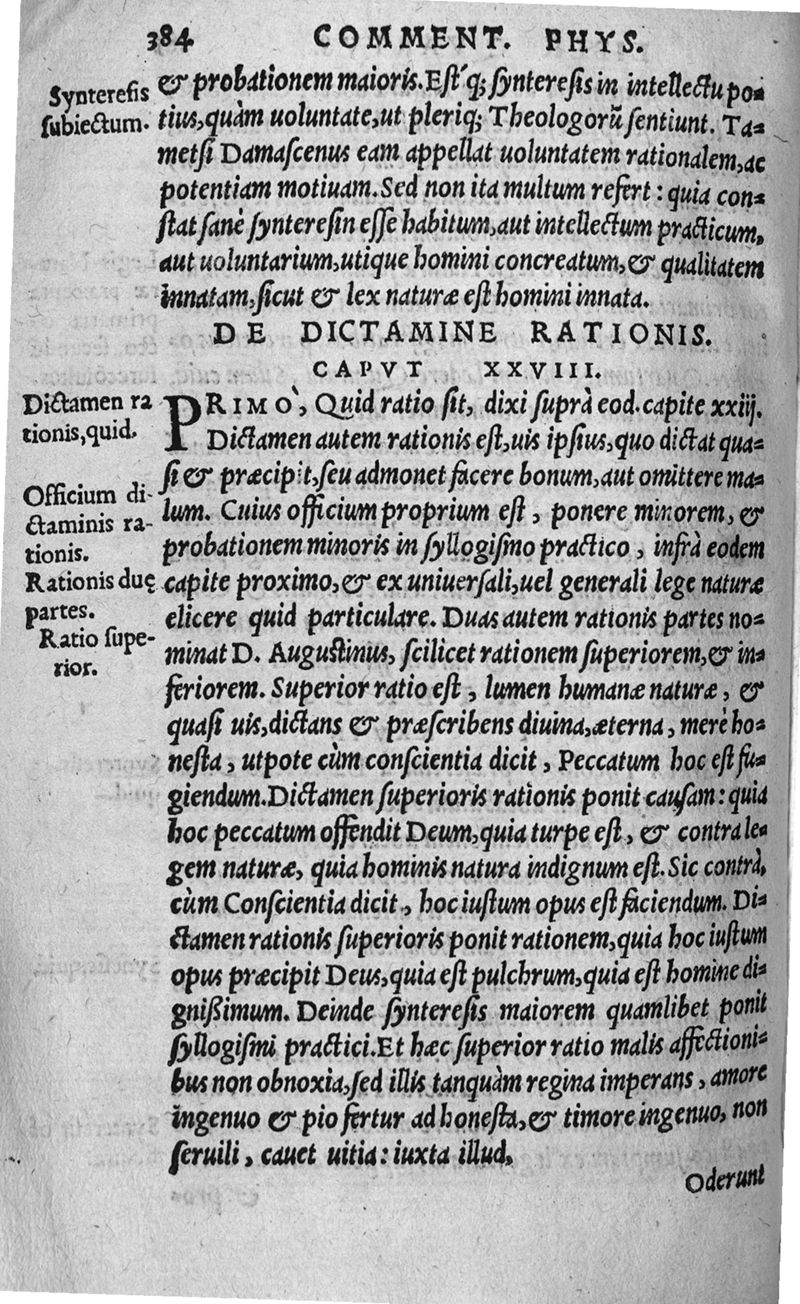 384 COMMENT. PHYS.
Synteresis
subiectum.
& probationem maioris. Est´q; synteresis in intellectu po-
tius, quàm uoluntate, ut pleriq; Theologorũ sentiunt. Ta-
metsi Damascenus eam appellat uoluntatem rationalem, ac
potentiam motiuam. Sed non ita multum refert: quia con-
stat sanè synteresin esse habitum, aut intellectum practicum,
aut uoluntarium, utique homini concreatum, & qualitatem
innatam, sicut & lex naturæ est homini innata.
DE DICTAMINE RATIONIS.
CAPVT XXVIII.
Dictamen ra
tionis, quid.
PRIMO`, Quid ratio sit, dixi suprà eod. capite xxiij.
Dictamen autem rationis est, uis ipsius, quo dictat qua-
si & præcipit, seu admonet facere bonum, aut omittere ma-
Officium di-
ctaminis ra-
tionis.
lum. Cuius officium proprium est, ponere minorem, &
probationem minoris in syllogismo practico, infrà eodem
Rationis duę
partes.
capite proximo, & ex uniuersali, uel generali lege naturæ
elicere quid particulare. Duas autem rationis partes no-
Ratio supe-
rior.
minat D. Augustinus, scilicet rationem superiorem, & in-
feriorem. Superior ratio est, lumen humanæ naturæ, &
quasi uis, dictans & præscribens diuina, æterna, merè ho-
nesta, utpote cùm conscientia dicit, Peccatum hoc est fu-
giendum. Dictamen superioris rationis ponit causam: quia
hoc peccatum offendit Deum, quia turpe est, & contra le-
gem naturæ, quia hominis natura indignum est. Sic contrà,
cùm Conscientia dicit, hoc iustum opus est faciendum. Di-
ctamen rationis superioris ponit rationem, quia hoc iustum
opus præcipit Deus, quia est pulchrum, quia est homine di-
gnißimum. Deinde synteresis maiorem quamlibet ponit
syllogismi practici. Et hæc superior ratio malis affectioni-
bus non obnoxia, sed illis tanquàm regina imperans, amore
ingenuo & pio fertur ad honesta, & timore ingenuo, non
seruili, cauet uitia: iuxta illud,
Oderunt